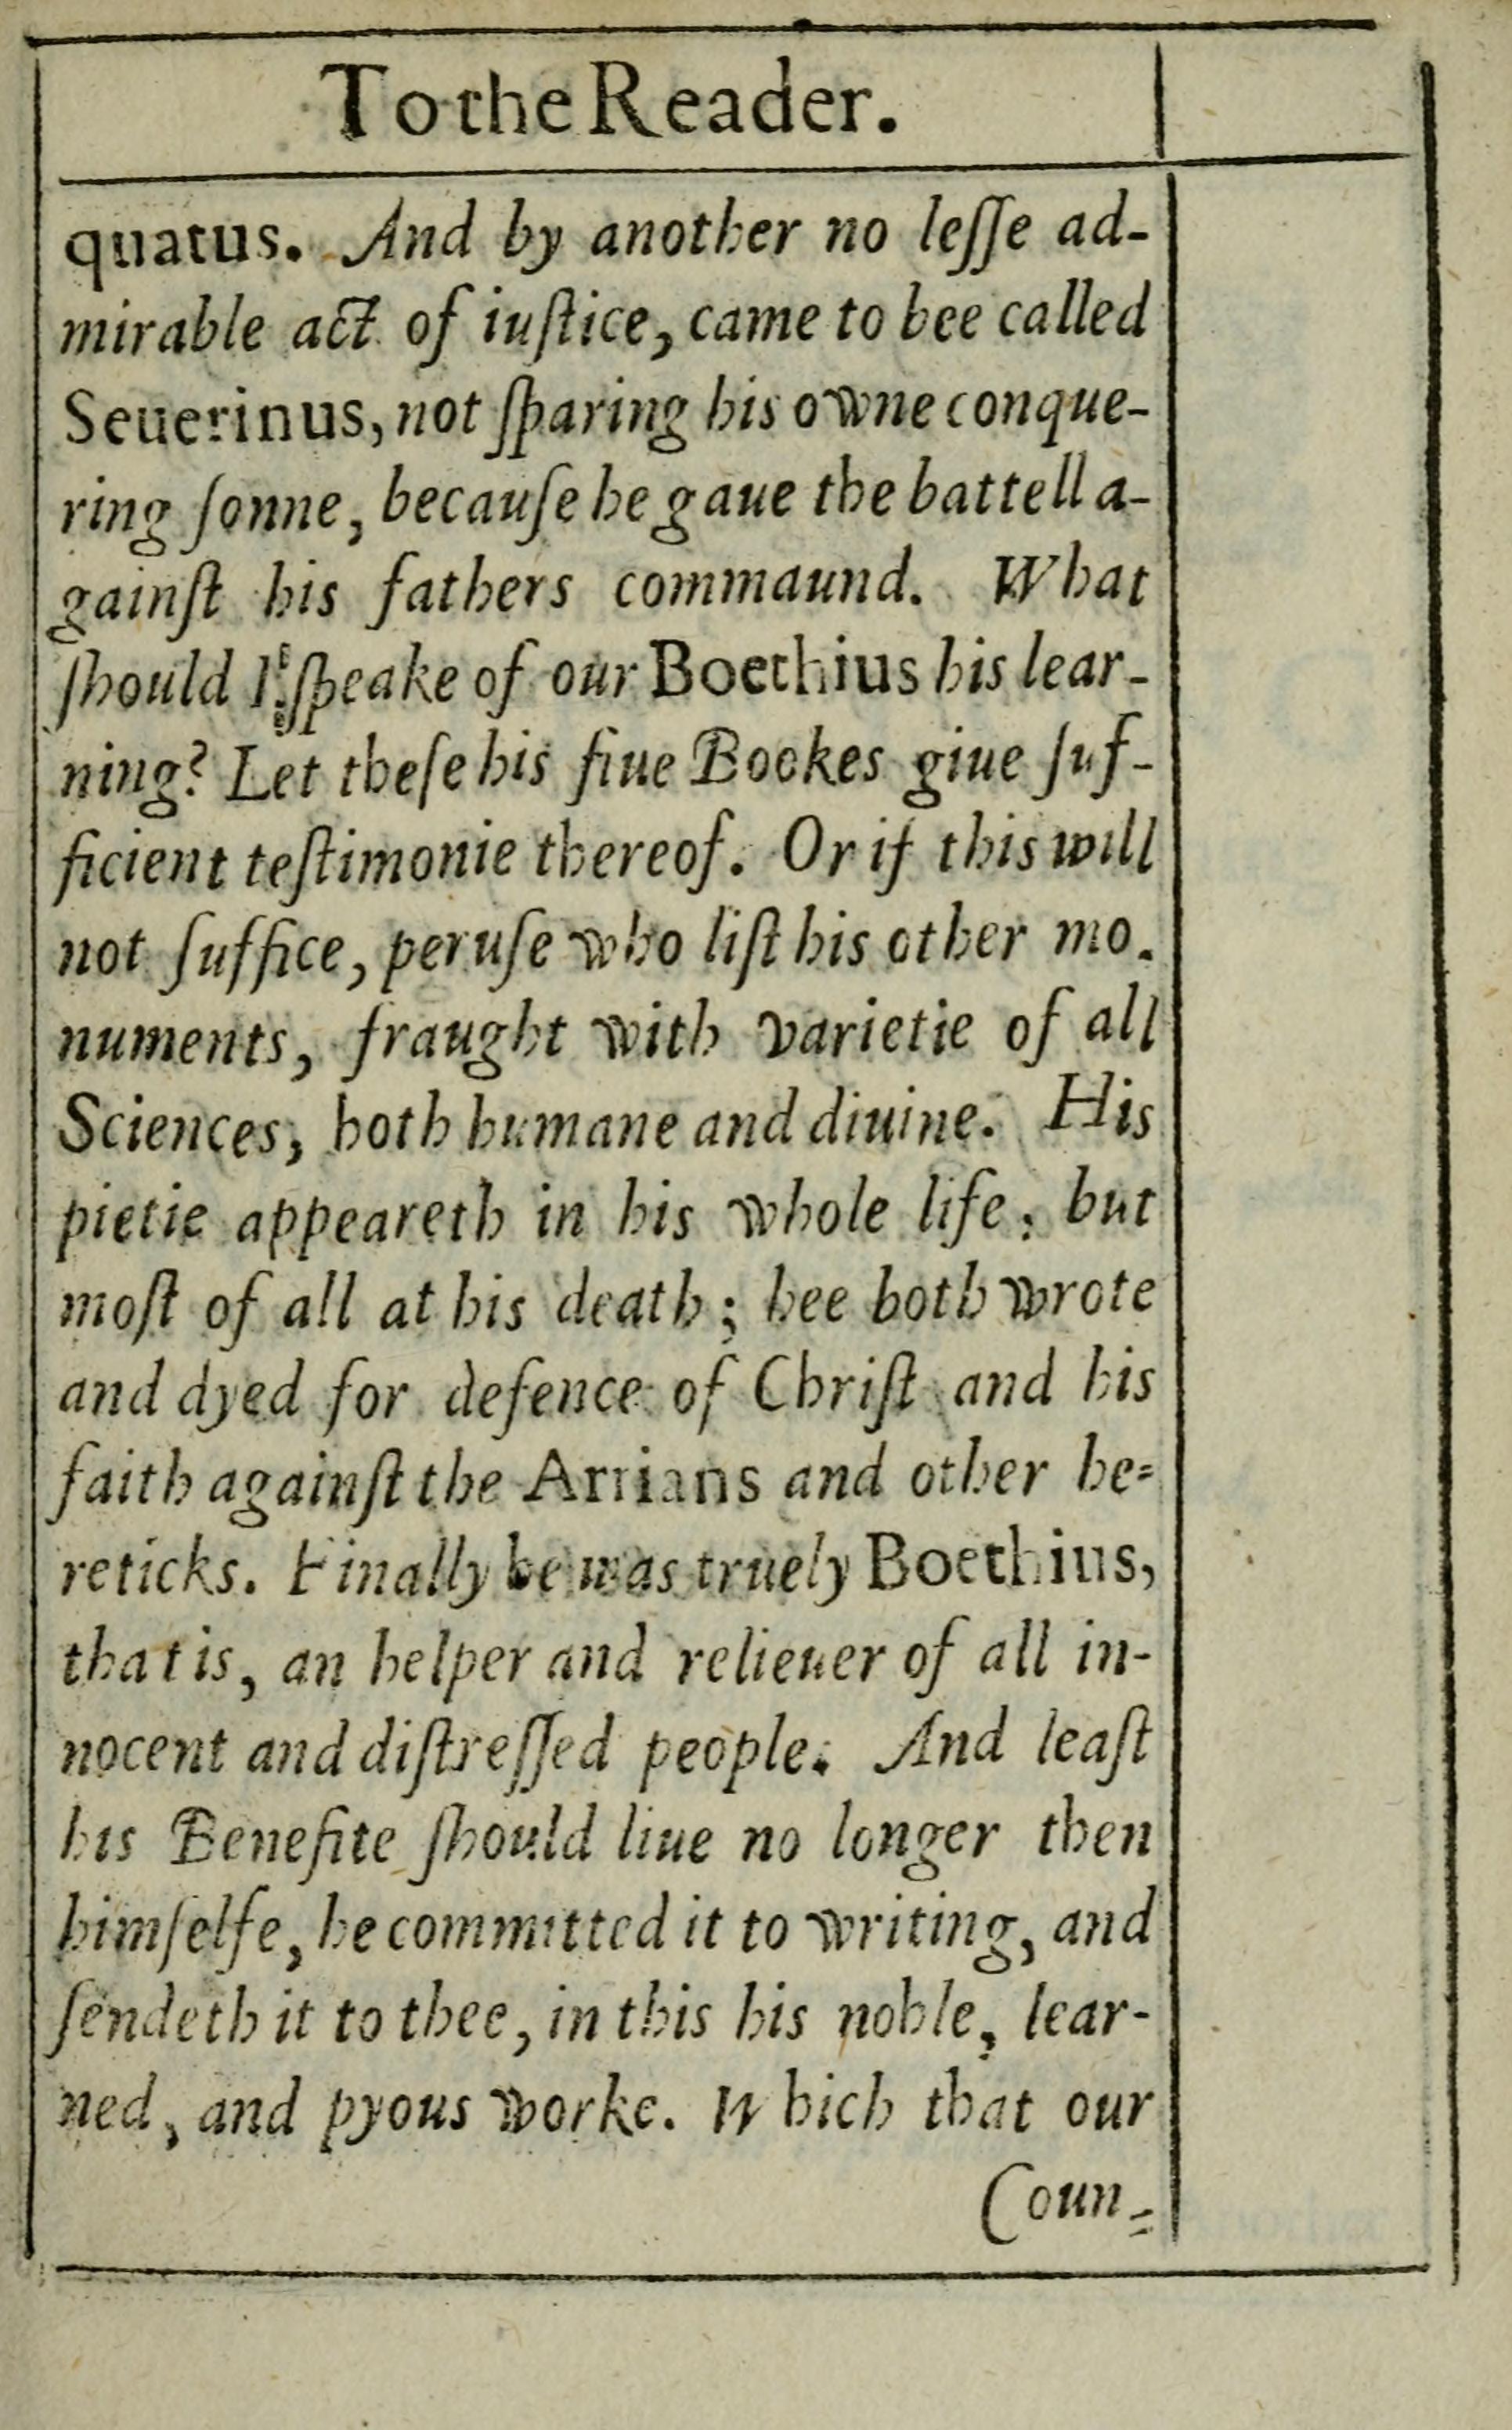 To the Reader.
quatus. And by another no leſſe ad-
mirable act of iuſtice, came to bee called
Seuerinus, not ſparing his owne conque-
ring ſonne, becauſe he gaue the battell a-
gainſt his fathers commaund. What
ſhould I ſpeake of our Boethius his lear-
ning? Let theſe his fiue Bookes giue ſuf-
ficient teſtimonie thereof. Or if this will
not ſuffice, peruſe who liſt his other mo.
numents, fraught with varietie of all
Sciences, both humane and diuine. His
pietie appeareth in his whole life, but
moſt of all at his death; hee both wrote
and dyed for defence of Chriſt and his
faith againſt the Arrians and other he-
reticks. Finally he was truely Boethius,
that is, an helper and relieuer of all in-
nocent and diſtreſſed people. And leaſt
his Benefite ſhould liue no longer then
himſelfe, he committed it to writing, and
ſendeth it to thee, in this his noble, lear-
ned, and pyous worke. Which that our
Coun-